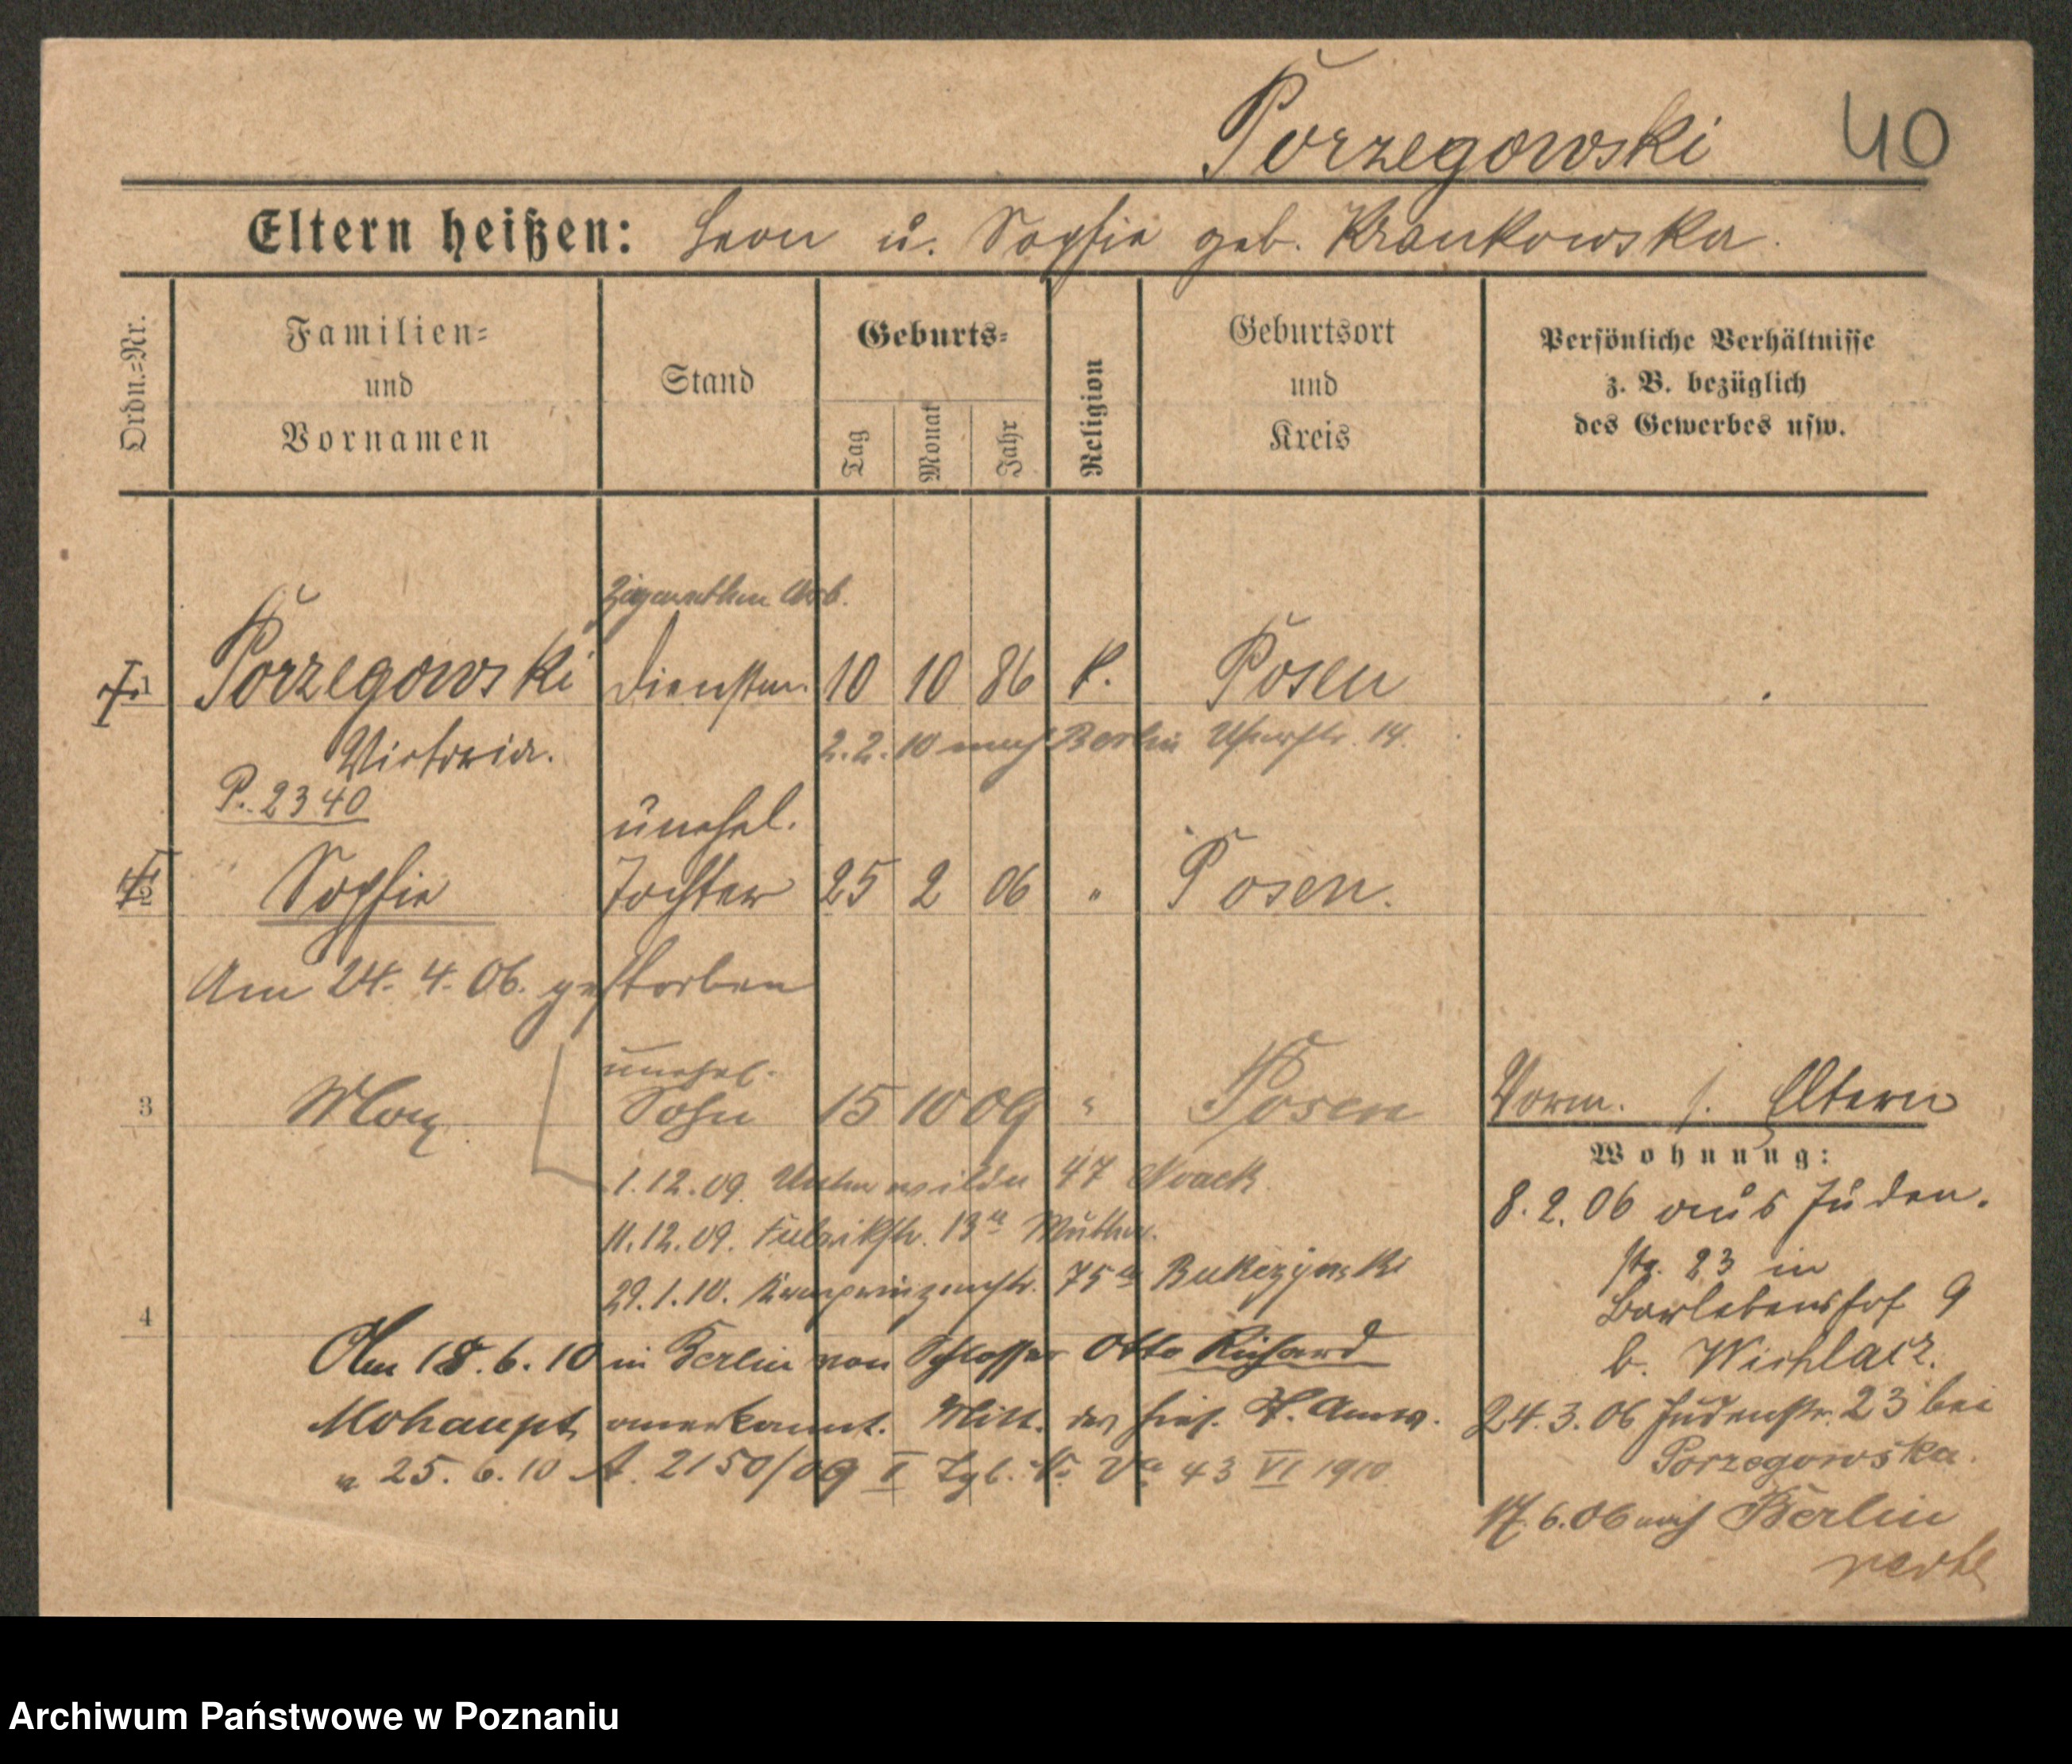 Porzegowski 40
Eltern heißen: Leon u. Sophie geb. Krankowska.
Ordn.-Nr.
Familien-
und
Vornamen
Stand
Geburts-
Tag
Monat
Jahr
Religion
Geburtsort
und
Kreis
Persönliche Verhältnisse
z. B. bezüglich
des Gewerbes usw.
Zigaretten Arb.
1 Porzegowski Dienstm. 10 10 86 k. Posen
Victoria.
2.2.10 nach Berlin Uferstr. 14.
P. 2340
unehel.
2 Sophie Tochter 25 2 06 " Posen.
Am 24. 4. 06. gestorben
unehel.
3 Max Sohn 15 10 09 " Posen
1.12.09. Unterwilda 47 Noack
11.12.09. Fabrikstr. 13a Mutter.
29.1.10. Kronprinzenstr. 75a
4
Am 18.6.10 in Berlin von Schlosser Otto Richard
Mohaupt anerkannt. Mitt. des hies. St. Amts.
v. 25.6.10 A. 2150/09 I Tgb. No Va 43 VI 1910
Vorm. s. Eltern
Wohnung:
8.2.06 aus Juden-
str. 23 in
Barlebenshof 9
b.
24.3.06 Judenstr. 23 bei
Porzegowska.
17.6.06 nach Berlin
verte
Archiwum Państwowe w Poznaniu